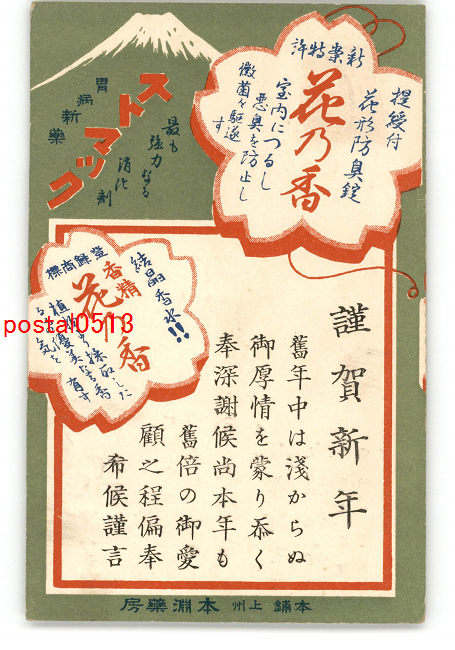 新案特許
提綬付
花形防臭錠
花乃香
室内につるし
悪臭を防止し
黴菌を駆逐す
胃病新薬
ストマックコ
最も
強力なる
消化剤
登録商標
結晶香水!!
香精
花乃香
植
優美なる香
気を
有す
謹賀新年
舊年中は淺からぬ
御厚情を蒙り忝く
奉深謝候尚本年も
舊倍の御愛
顧之程偏奉
希候謹言
本舗 上州 本淵藥房
postal0513